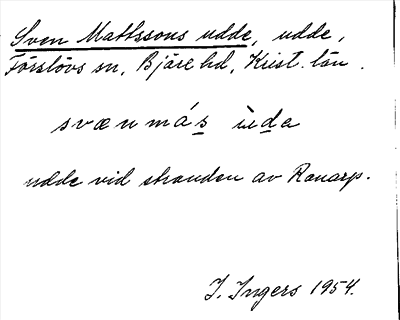 Sven Mattssons udde, udde,
Förslövs sn, Bjäre hd, Krist. län.
svænmás ùda
udde vid stranden av Ranarp.
I. Ingers 1954.